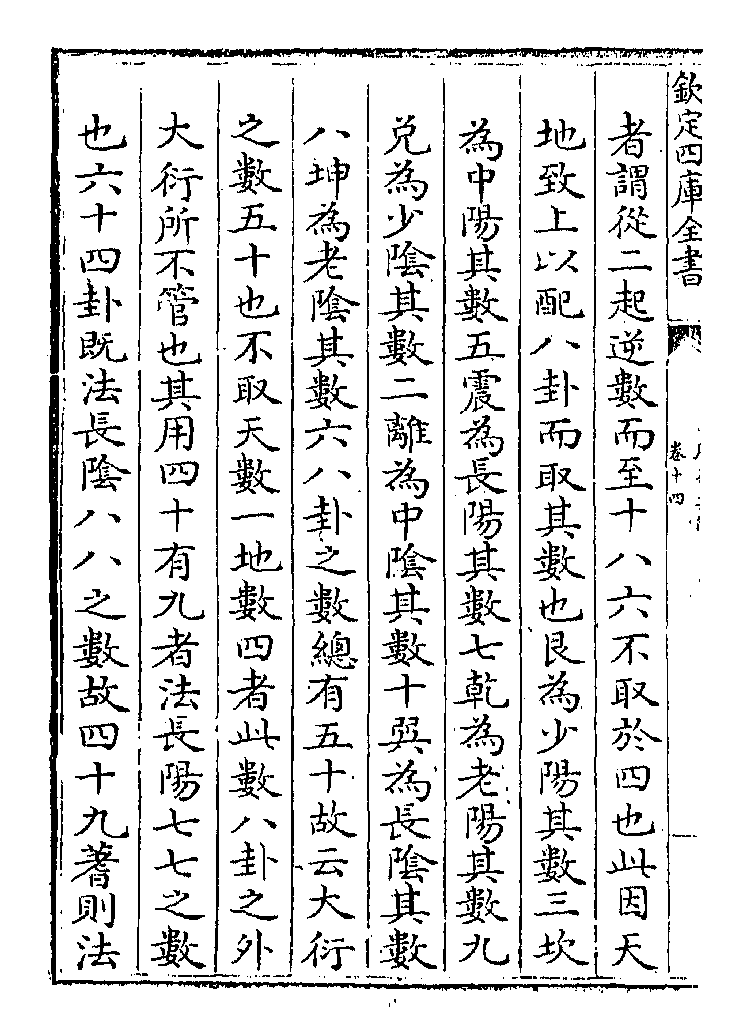 欽定四庫全書
卷十四
者謂從二起逆數而至十八六不取於四也此因天
地致上以配八卦而取其數也艮為少陽其數三坎
為中陽其數五震為長陽其數七乾為老陽其數九
兌為少隂其數二離為中隂其數十巽為長隂其數
八坤為老隂其數六八卦之數總有五十故云大衍
之數五十也不取天數一地數四者此數八卦之外
大衍所不管也其用四十有九者法長陽七七之數
也六十四卦既法長隂八八之數故四十九蓍則法